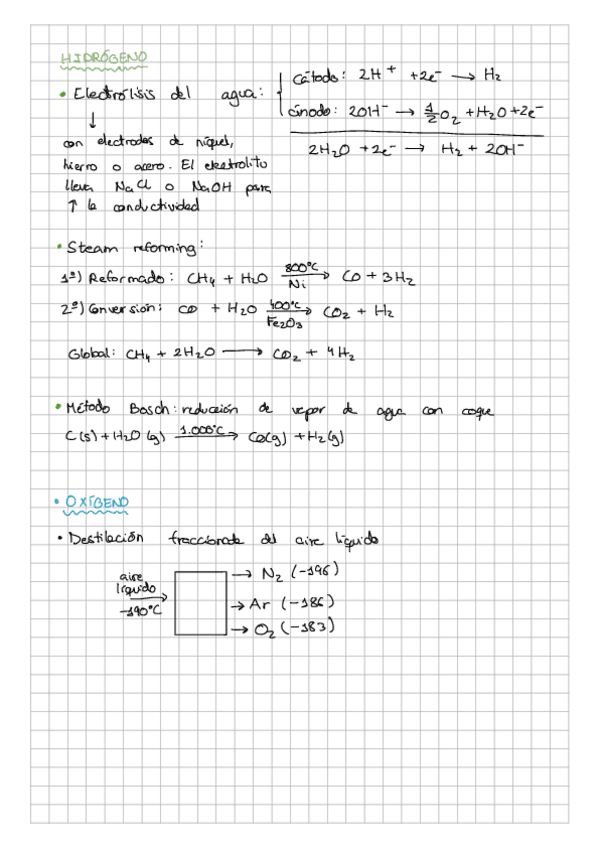 HIDRÓGENO
• Electrólisis del agua: { Cátodo: 2H⁺ + 2e⁻ → H₂
ánodo: 2OH⁻ → 1/2 O₂ + H₂O + 2e⁻
2H₂O + 2e⁻ → H₂ + 2OH⁻
↓
con electrodos de níquel,
hierro o acero. El electrolito
lleva NaCl o NaOH para
↑ la conductividad
• Steam reforming:
1º) Reformado: CH₄ + H₂O 800ºC → Ni CO + 3H₂
2º) Conversión: CO + H₂O 400ºC → Fe₂O₃ CO₂ + H₂
Global: CH₄ + 2H₂O → CO₂ + 4H₂
• Método Bosch: reducción de vapor de agua con coque
C(s) + H₂O(g) 1.000ºC → CO(g) + H₂(g)
• OXÍGENO
• Destilación fraccionada del aire líquido
aire
líquido
-190ºC
→ N₂ (-196)
→ Ar (-186)
→ O₂ (-183)